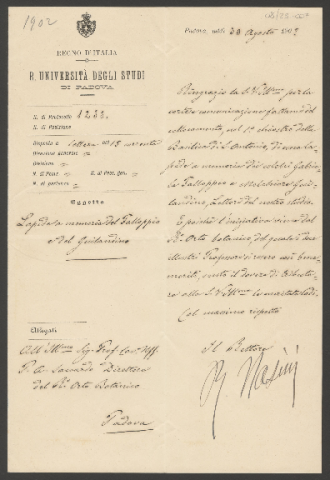 1902
REGNO D'ITALIA
R. UNIVERSITÀ DEGLI STUDI
DI PADOVA
N. di Protocollo 1232
N. di Posizione
Risposta a lettera del 18 corrente
Divisione
N. di partenza
Oggetto
Lapide a memoria del Falloppio
e del Guilandino
Allegati
All' Ill.mo Sig. Prof. Cav. Uff.
P. A. Saccardo Direttore
del R. Orto Botanico
Padova
Padova, addì 30 Agosto 1902
Ringrazio la S. V. Ill.ma per la
cortese comunicazione fattami del
collocamento, nel 1° chiostro della
Basilica di S. Antonio, di una lapi-
de a memoria dei celebri Gabrie-
le Falloppio e Melchiorre Gui-
landino, Lettori del nostro studio.
E poichè l'iniziativa viene dal
R. Orto Botanico, del quale i due
illustri Professori si resero assai bene-
meriti, sento il dovere di
alla S. V. Ill.ma
Col massimo rispetto
Il Rettore
R. Nasini